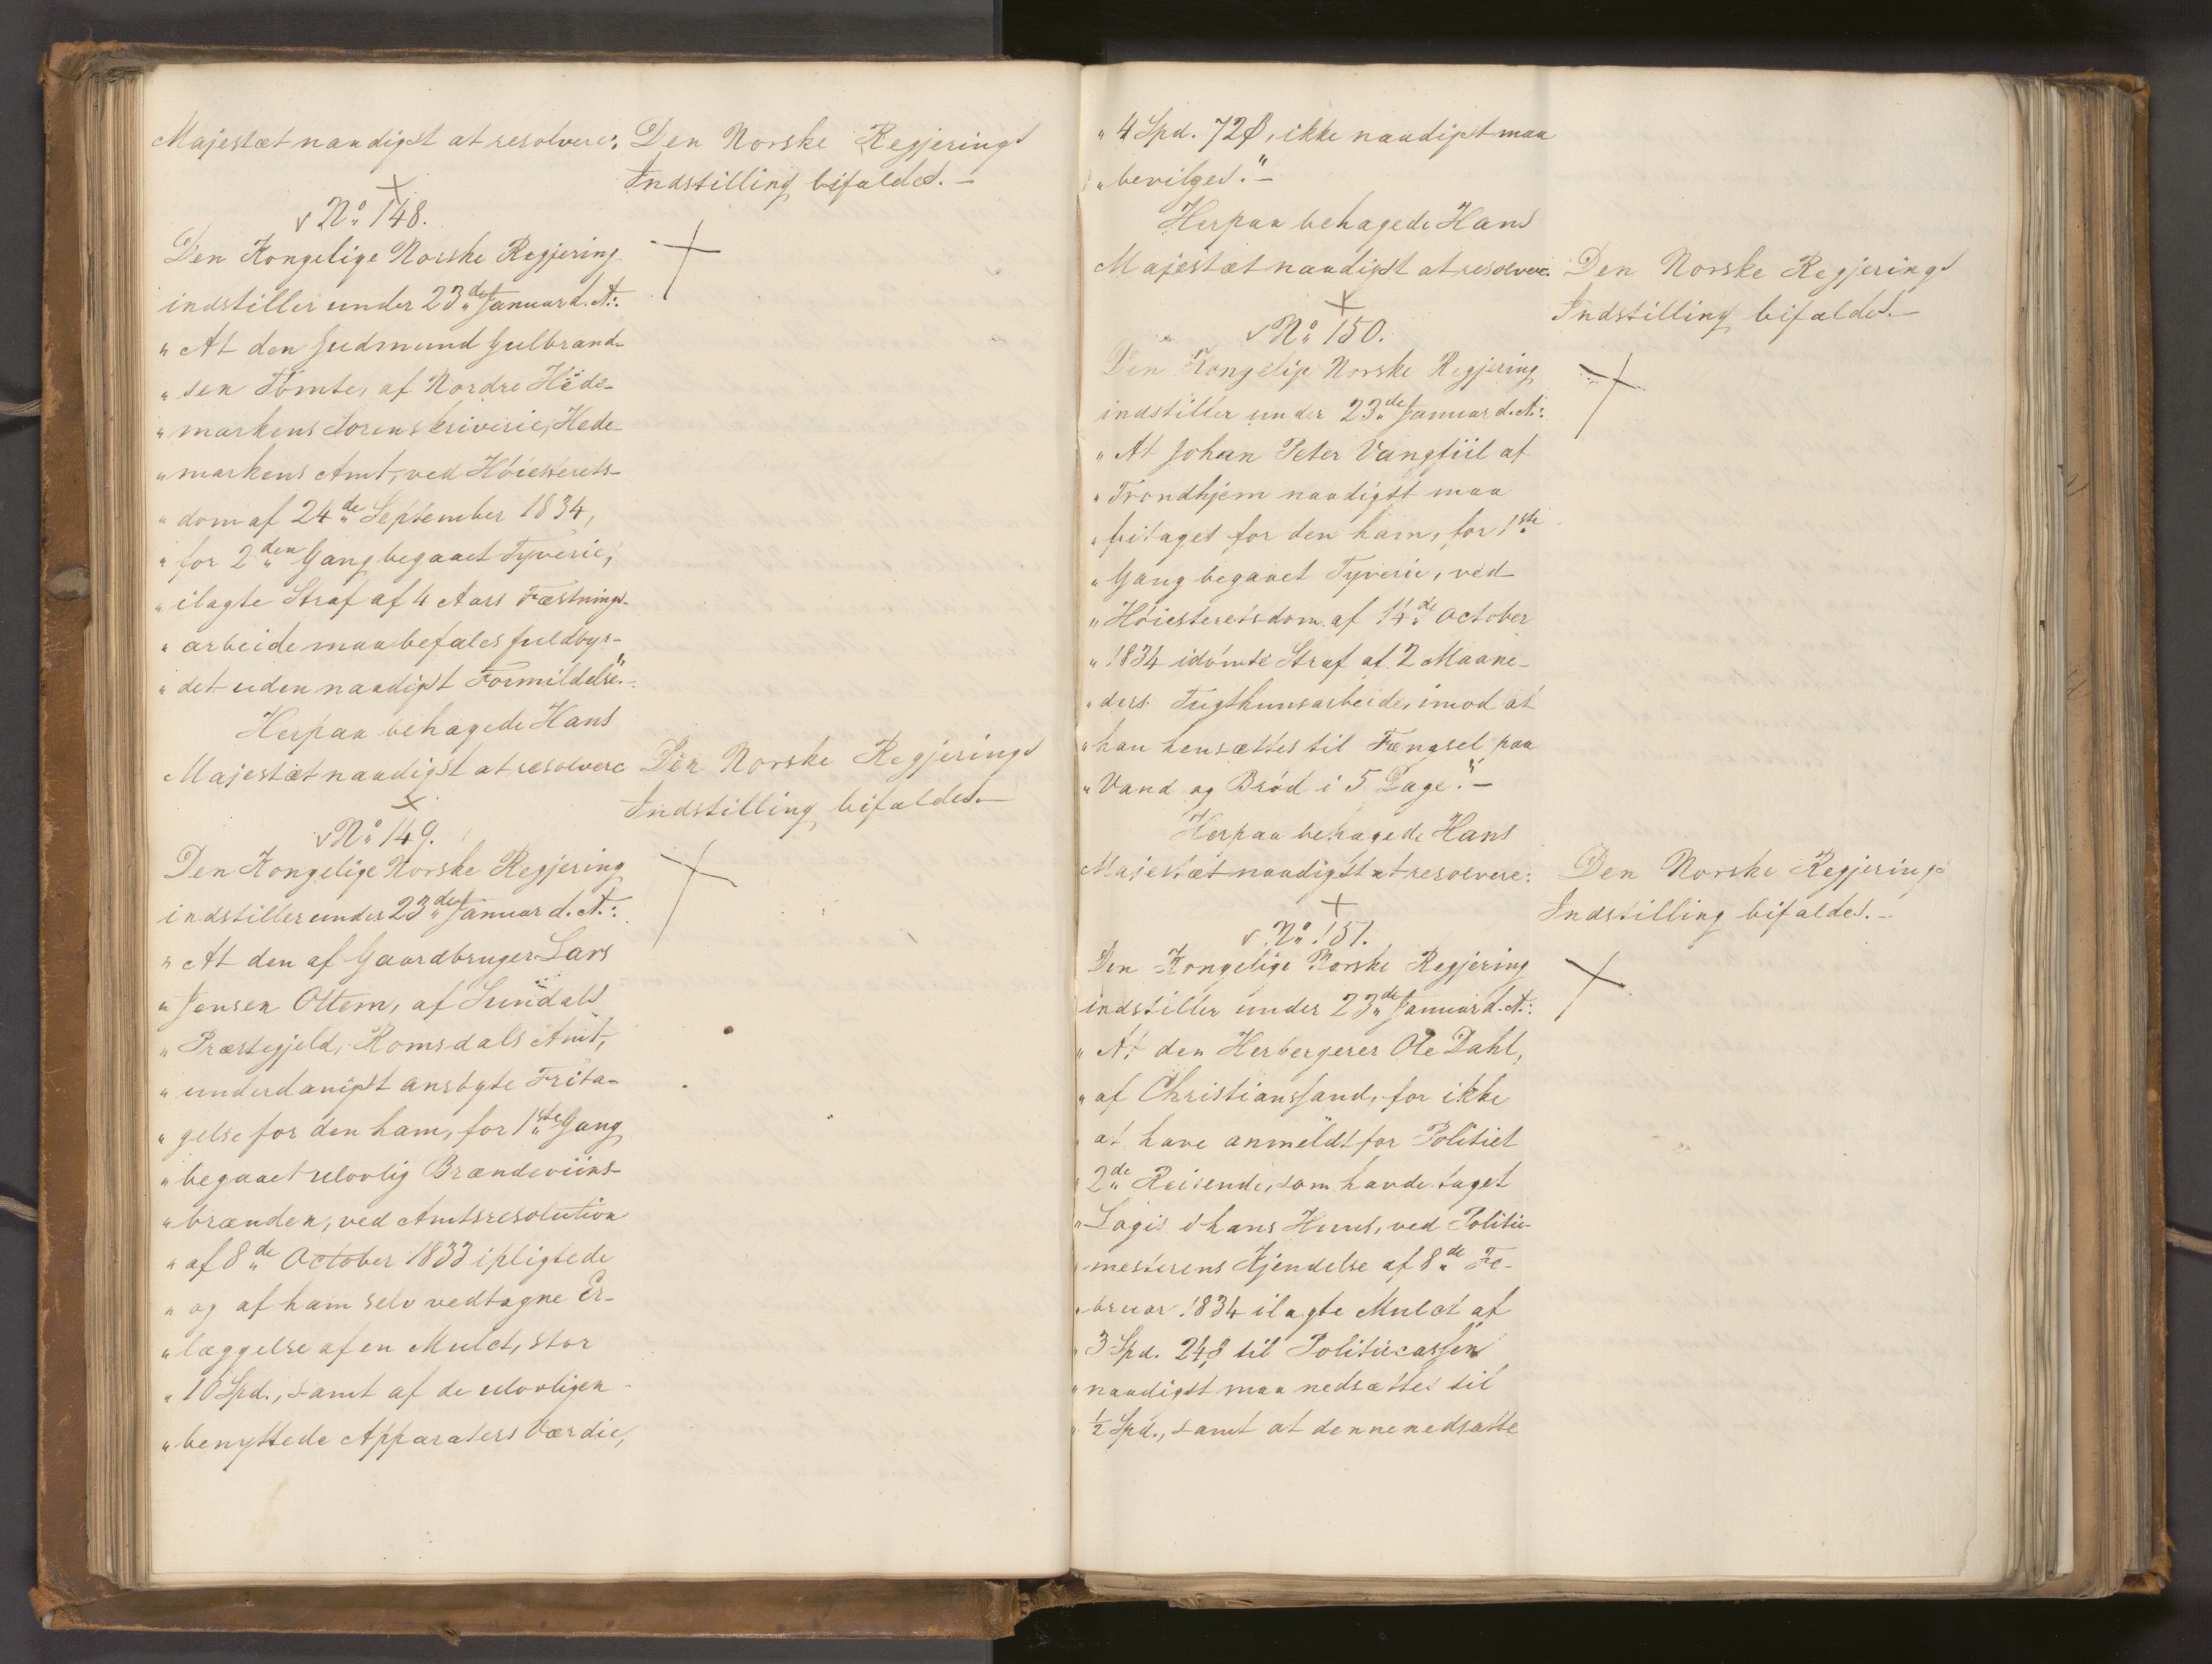 Majestæt naadigst at resolvere: Den Norske Regjerings
Indstilling bifaldes.-
No 148.
Den Kongelige Norske Regjering
indstiller under 23de Januar d. A.:
" At den Gudmund Gulbrand-
" sen Tomte, af Nordre Hede-
" markens Sorenskriverie, Hede-
" markens Amt, ved Höiesterets-
" dom af 24de September 1834,
" for 2den Gang begaaet Tyverie,
" ilagte Straf af 4 Aars Fæstnings-
" arbeide maa befales fuldbyr-
" det uden naadigst Formildelse".-
Herpaa behagede Hans
Majestæt naadigst at resolvere Den Norske Regjerings
Indstilling bifaldes.-
No 149.
Den Kongelige Norske Regjering
indstiller under 23de Januar d. A.:
" At den af Gaardbruger Lars
" Jensen Ottem, af Sundals
" Præstegjeld, Romsdals Amt,
" underdanigst ansøgte Frita-
" gelse for den ham, for 1ste Gang
" begaaet ulovlig Brændeviins-
" brænden, ved Amtsresolution
" af 8de October 1833 ipligtede
" og af ham selv vedtagne Er-
" læggelse af en Mulct, stor
" 10 Spd., samt af de ulovligen
" benyttede Apparaters Værdie,
" 4 Spd. 72 ß, ikke naadigst maa
" bevilges."-
Herpaa behagede Hans
Majestæt naadigst at resolvere: Den Norske Regjerings
Indstilling bifaldes.-
No 150.
Den Kongelige Norske Regjering
indstiller under 23de Januar d. A.:
" At Johan Peter Vangfiil af
" Trondhjem naadigst maa
" fritages for den ham, for 1ste
" Gang begaaet Tyverie, ved
" Höiesteretsdom af 14de October
" 1834 idömte Straf af 2 Maane-
" ders Tugthuusarbeide, imod at
" han hensættes til Fængsel paa
" Vand og Bröd i 5 Dage."-
Herpaa behagede Hans
Majestæt naadigst at resolvere: Den Norske Regjerings
Indstilling bifaldes.-
No 151.
Den Kongelige Norske Regjering
indstiller under 23de Januar d. A.:
" At den Herbergerer Ole Dahl,
" af Christianssand, for ikke
" at have anmeldt for Politiet
" 2de Reisende, som havde taget
" Logis i hans Huus, ved Politie-
" mesterens Kjendelse af 8de Fe-
" bruar 1834 ilagte Mulct af
" 3 Spd. 24 ß til Politiecassen
" naadigst maa nedsættes til
" ½ Spd., samt at denne nedsatte